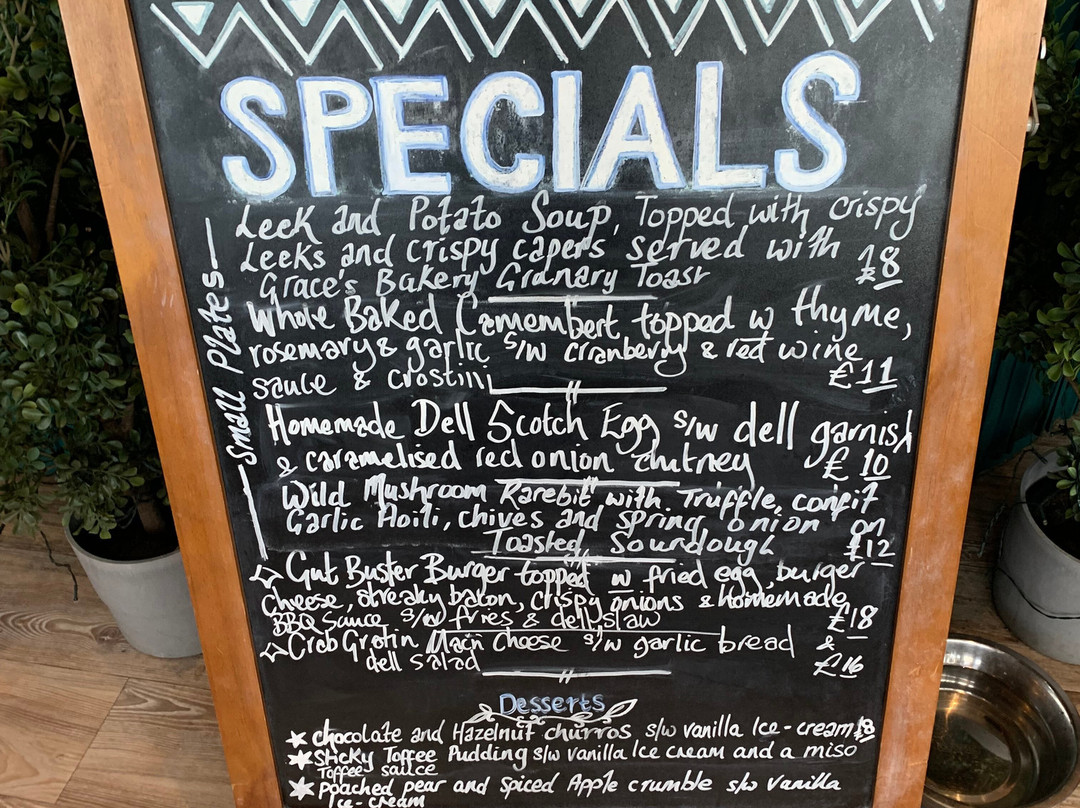 SPECIALS
Small Plates
Leek and Potato Soup, Topped with crispy
Leeks and crispy capers served with £8
Grace's Bakery Granary Toast
Whole Baked Camembert topped w thyme,
rosemary & garlic s/w cranberry & red wine
sauce & crostini £11
Homemade Dell Scotch Egg s/w dell garnish
& caramelised red onion chutney £10
Wild Mushroom Rarebit with Truffle, confit
Garlic Aoili, chives and spring onion on
Toasted Sourdough £12
Gut Buster Burger topped w fried egg, burger
cheese, streaky bacon, crispy onions & homemade
BBQ Sauce s/w fries & dell slaw £18
Crab Gratin Mac n Cheese s/w garlic bread &
dell salad £16
Desserts
chocolate and Hazelnut churros s/w vanilla Ice-cream £8
Sticky Toffee Pudding s/w vanilla Ice cream and a miso
Toffee sauce
poached pear and spiced Apple crumble s/w vanilla
Ice-cream